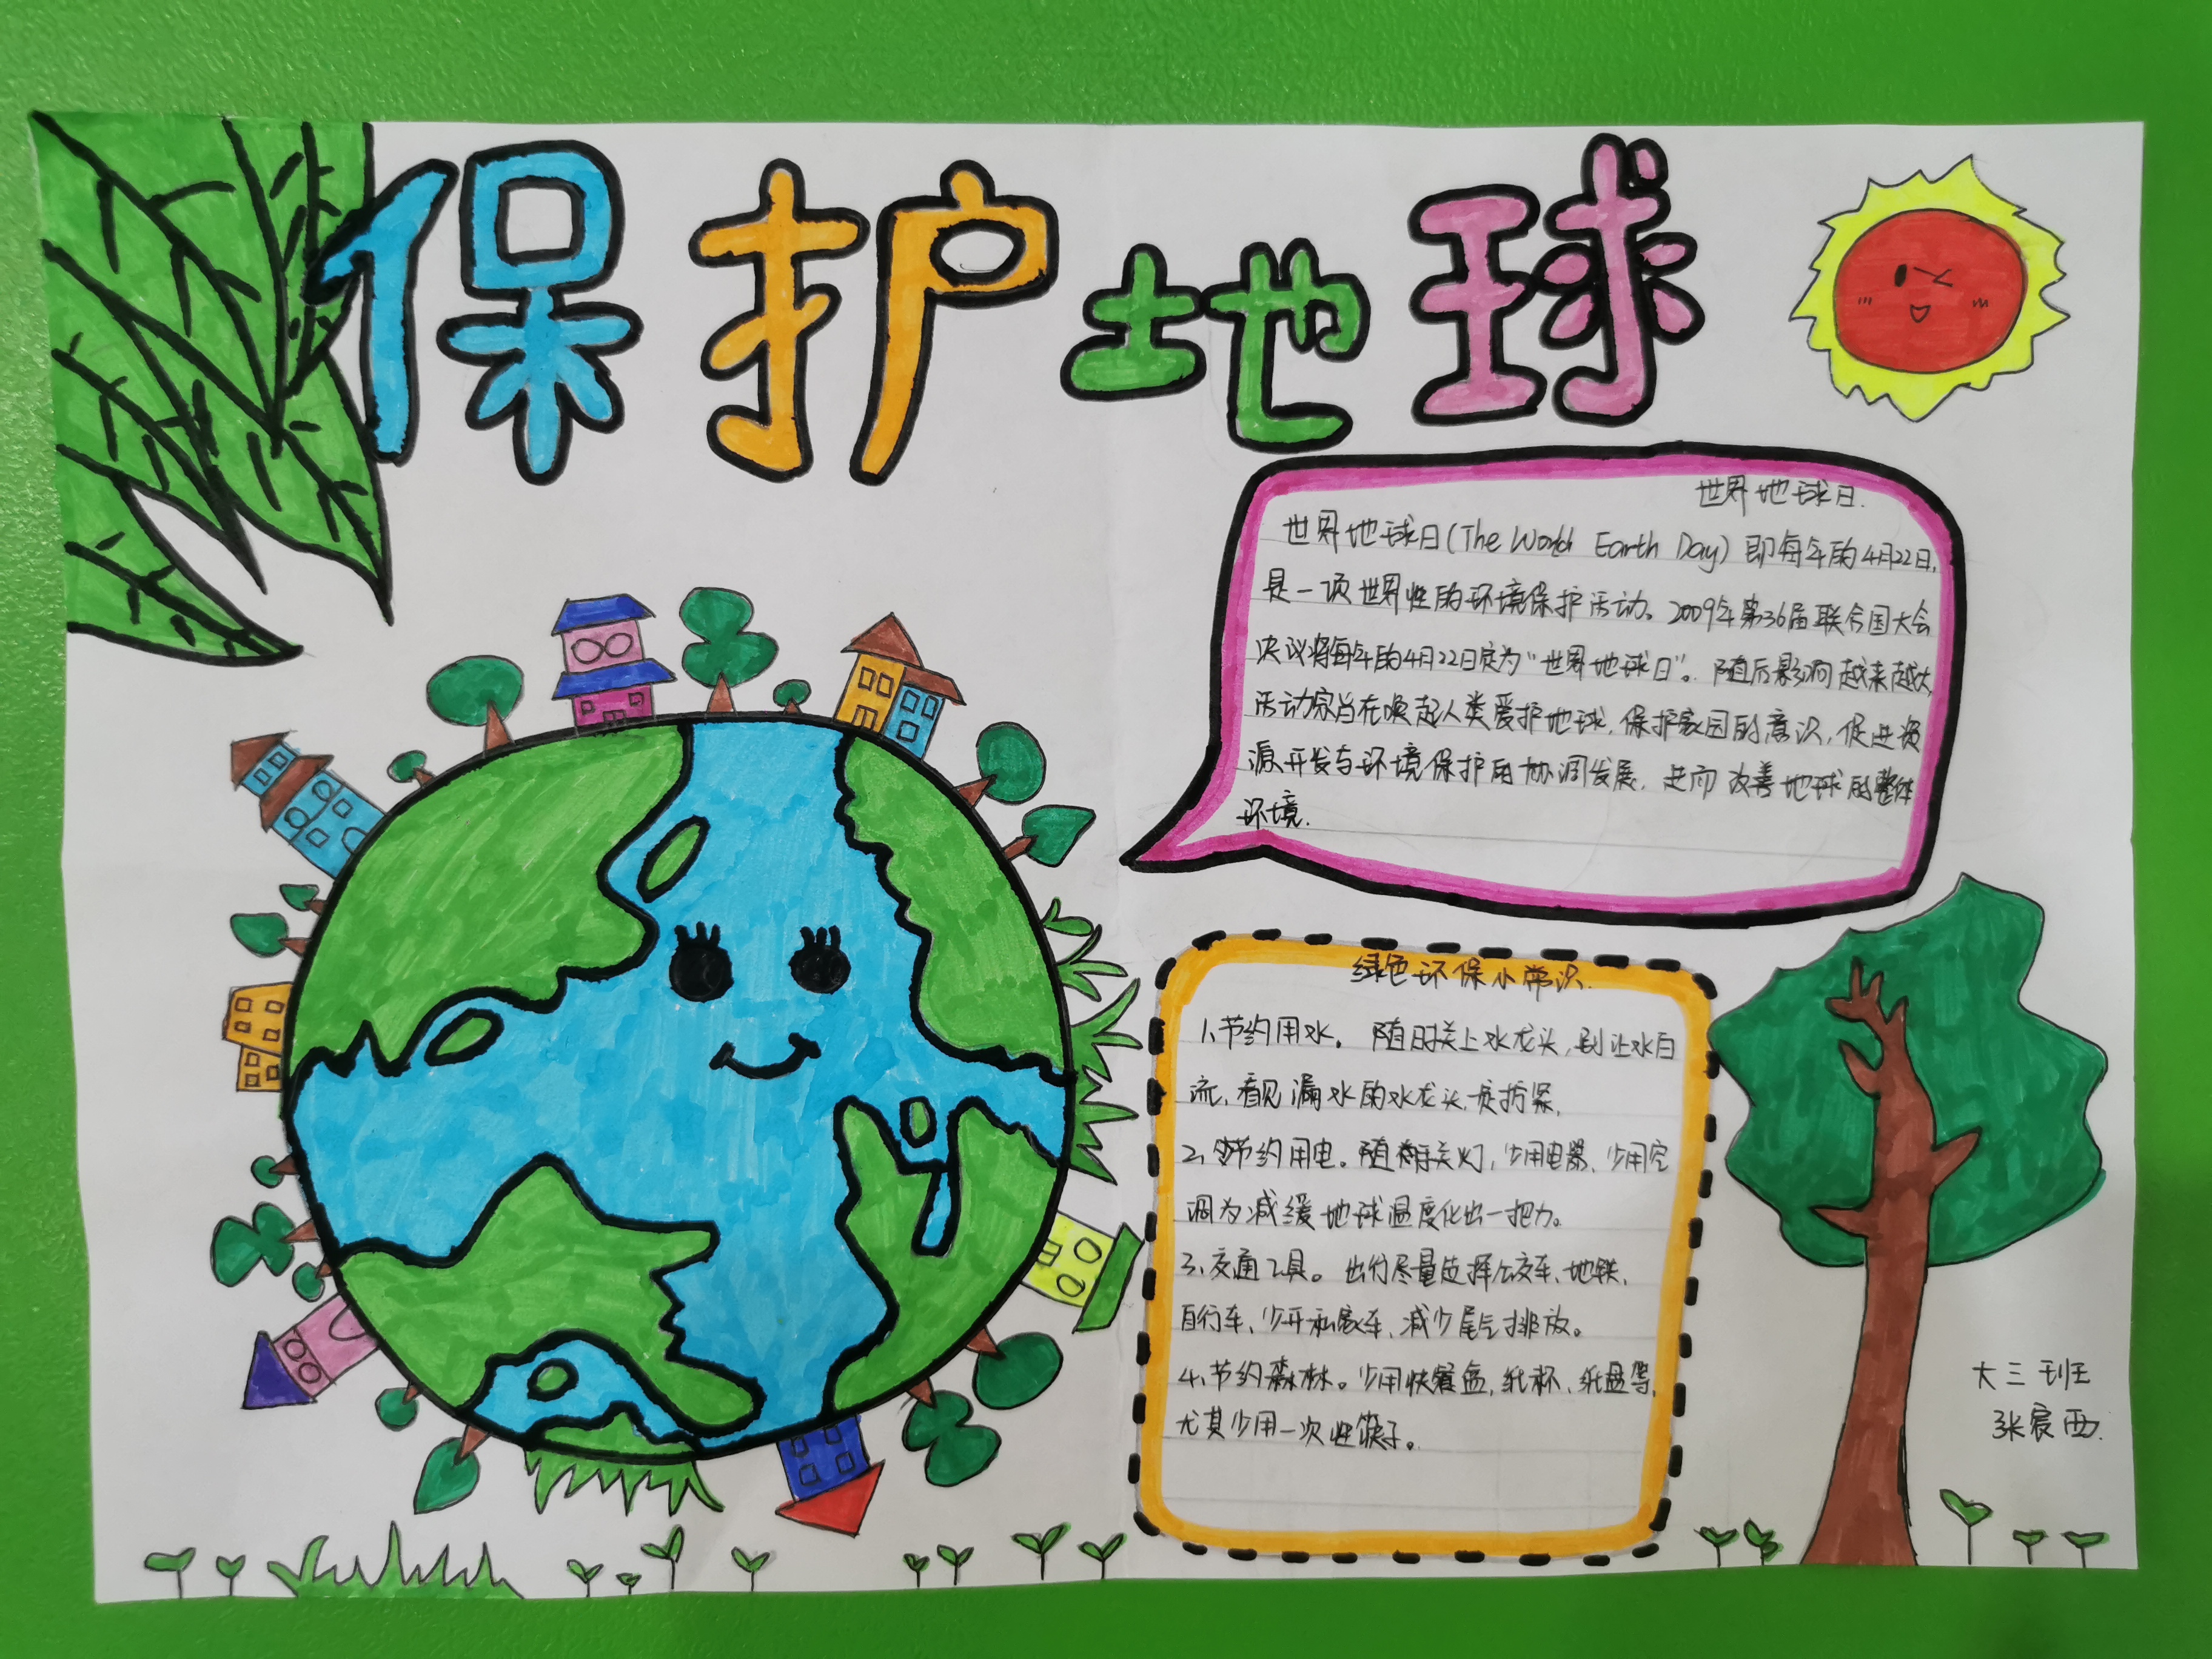 保护地球
世界地球日.
世界地球日(The World Earth Day)即每年的4月22日,
是一项世界性的环境保护活动。2009年第36届联合国大会
决议将每年的4月22日定为“世界地球日”。随后影响越来越大,
活动宗旨在唤起人类爱护地球,保护家园的意识,促进资
源开发与环境保护的协调发展,进而改善地球的整体
环境.
绿色环保小常识.
1、节约用水。随时关上水龙头,别让水白
流,看见漏水的水龙头,要拧紧,
2、节约用电。随手关灯,少用电器、少用空
调为减缓地球温度化出一把力。
3、交通工具。出行尽量选择公交车、地铁、
自行车、少开私家车、减少尾气排放。
4、节约森林。少用快餐盒,纸杯、纸盘等,
尤其少用一次性筷子。
大三班
张宸西